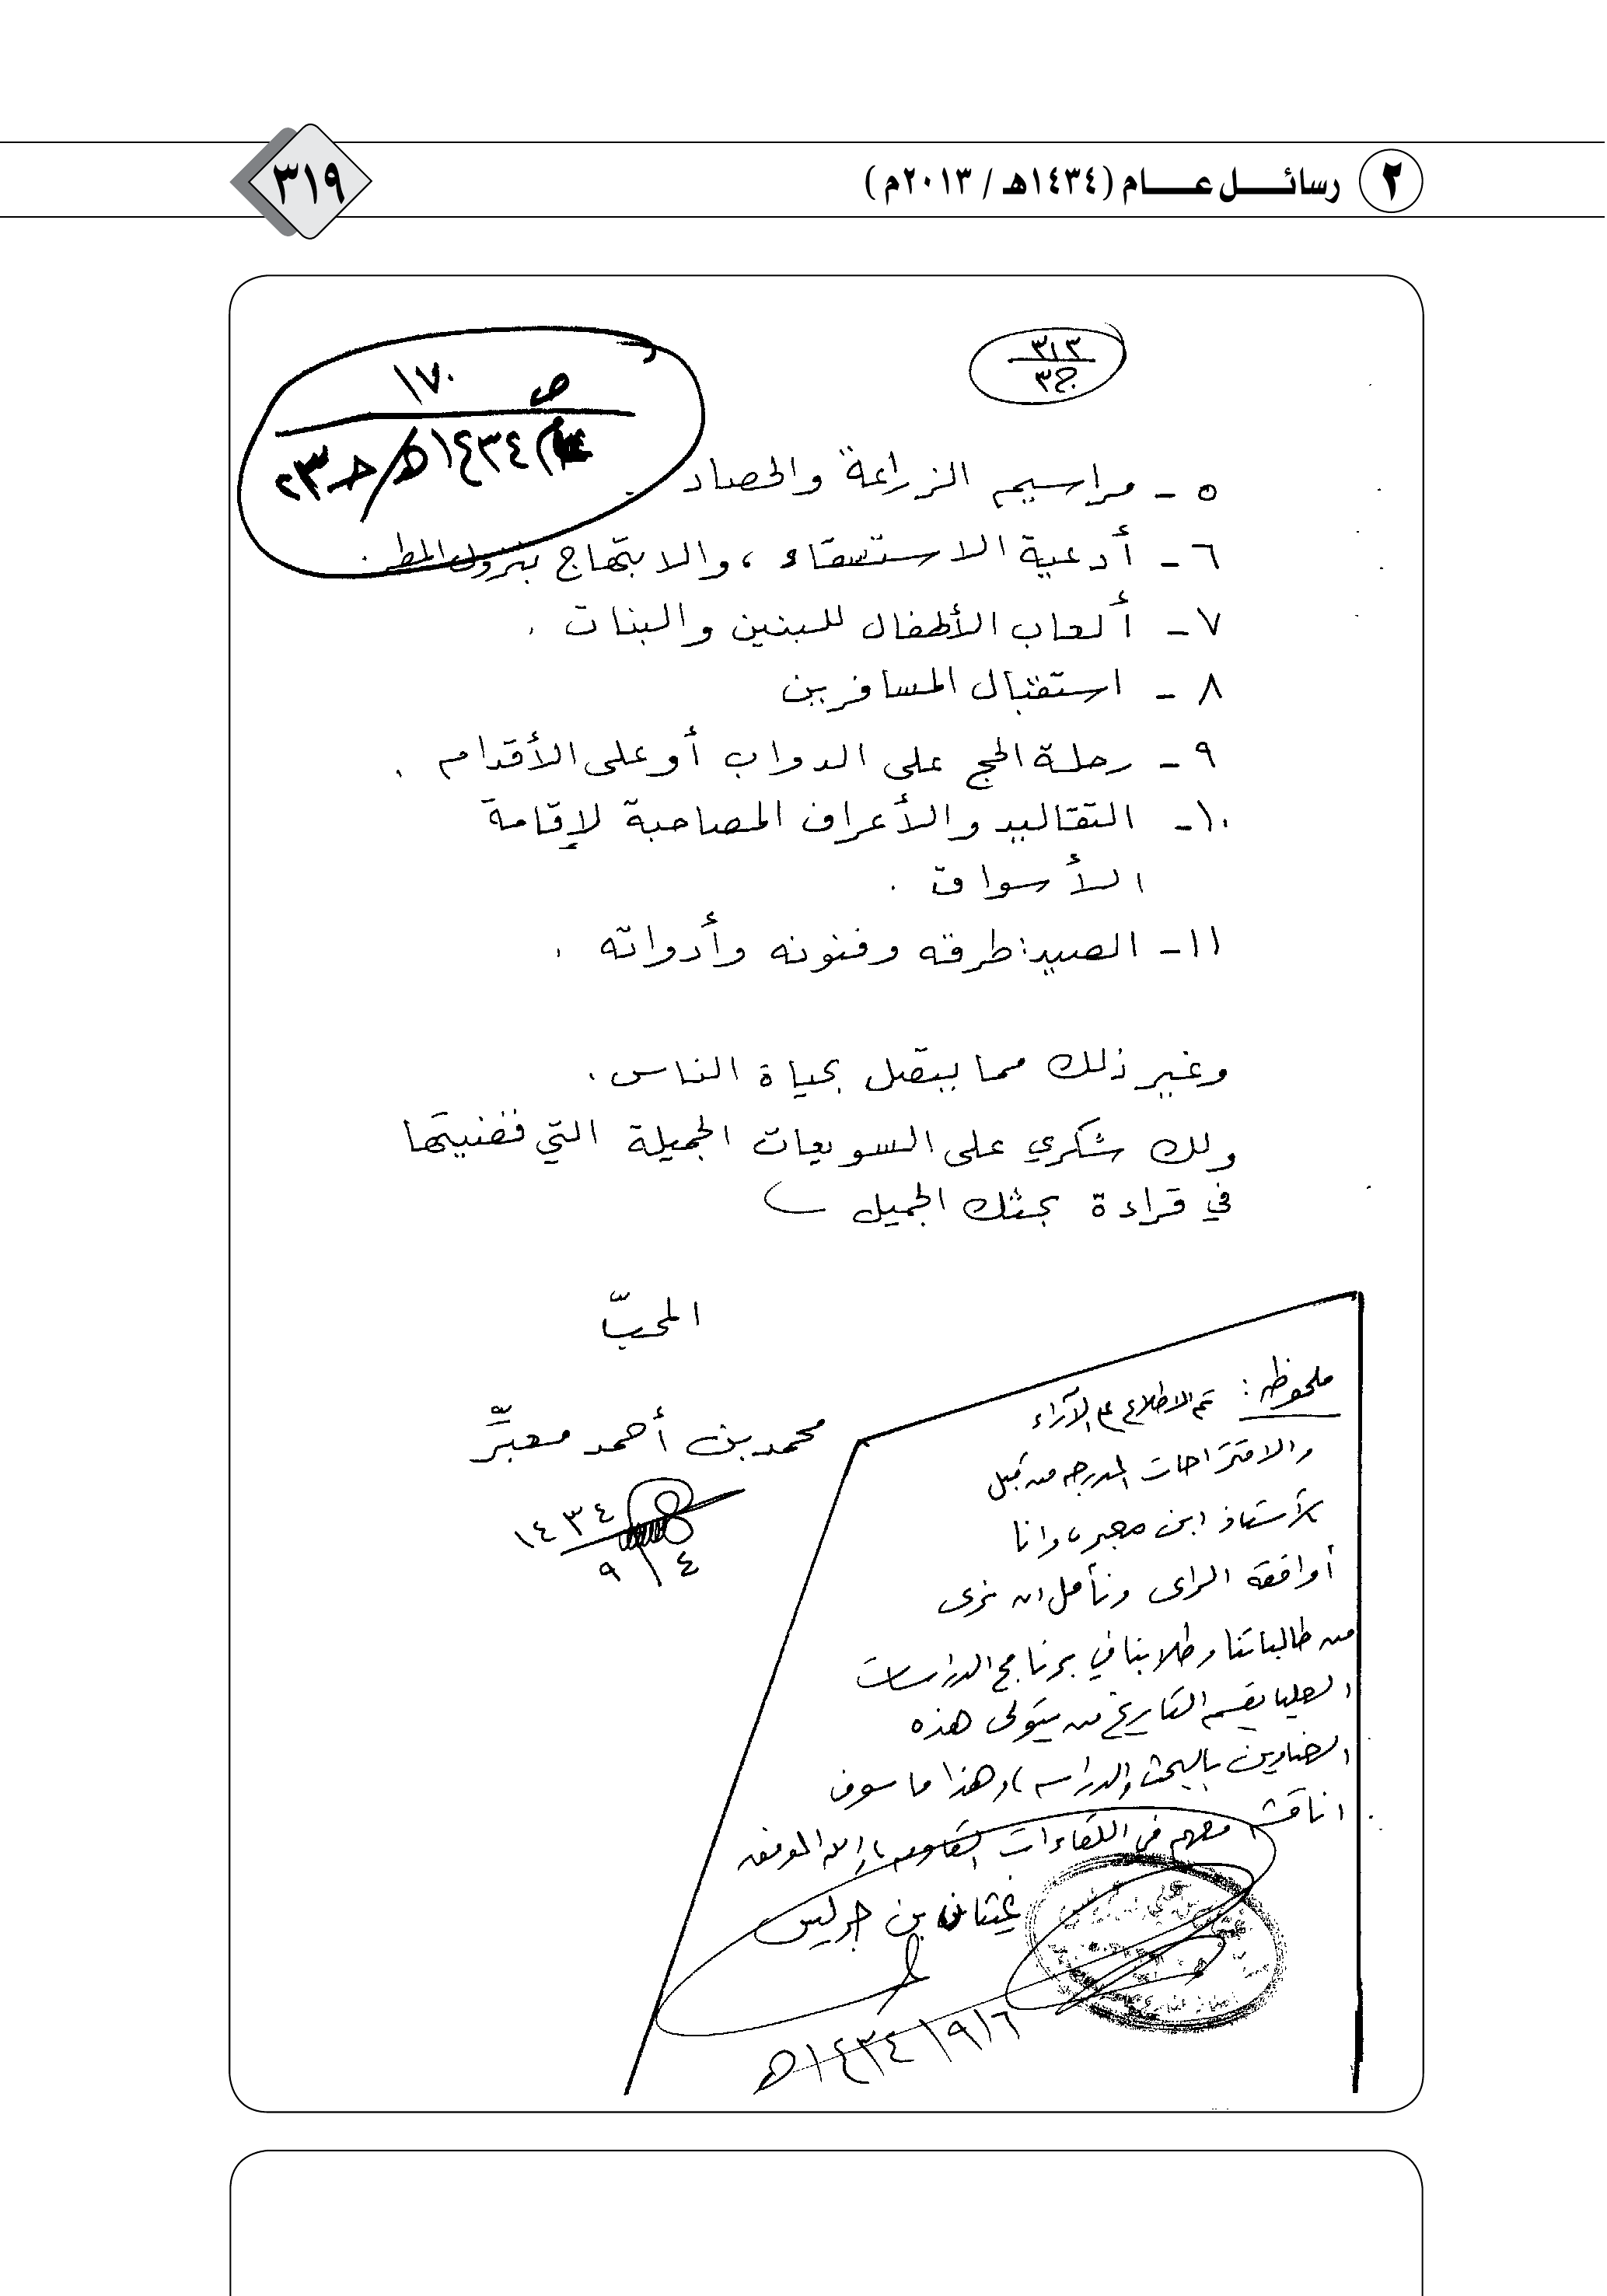 ٢ رسائل عام (١٤٣٤هـ / ٢٠١٣م)
٣١٩
٣١٣
ج٣
ص ١٧٠
١٤٣٤هـ / حـ ٢٣
٥ - مراسيم الزراعة والحصاد .
٦ - أدعية الاستسقاء ، والابتهاج بنزول المطر .
٧ - ألعاب الأطفال للبنين والبنات .
٨ - استقبال المسافرين
٩ - رحلة الحج على الدواب أو على الأقدام .
١٠ - التقاليد والأعراف المصاحبة لإقامة
الأسواق .
١١ - الصيد : طرقه وفنونه وأدواته .
وغير ذلك مما يتصل بحياة الناس .
ولك شكري على السويعات الجميلة التي قضيتها
في قراءة بحثك الجميل
المحبّ
محمد بن أحمد معبّر
١٤٣٤
٩/٤
ملحوظه : تم الاطلاع على الآراء
والاقتراحات المدرجه من قبل
الأستاذ ابن معبر، وانا
أوافقه الراى ونأمل ان نرى
من طالباتنا وطلابنا في برنامج الدراسات
العليا بقسم التاريخ من يتولى هذه
العناوين بالبحث والدراسه ، وهذا ما سوف
اناقشه معهم في اللقاءات القادمه ، والله الموفق
غيثان بن جريس
١٤٣٤/٩/٦هـ